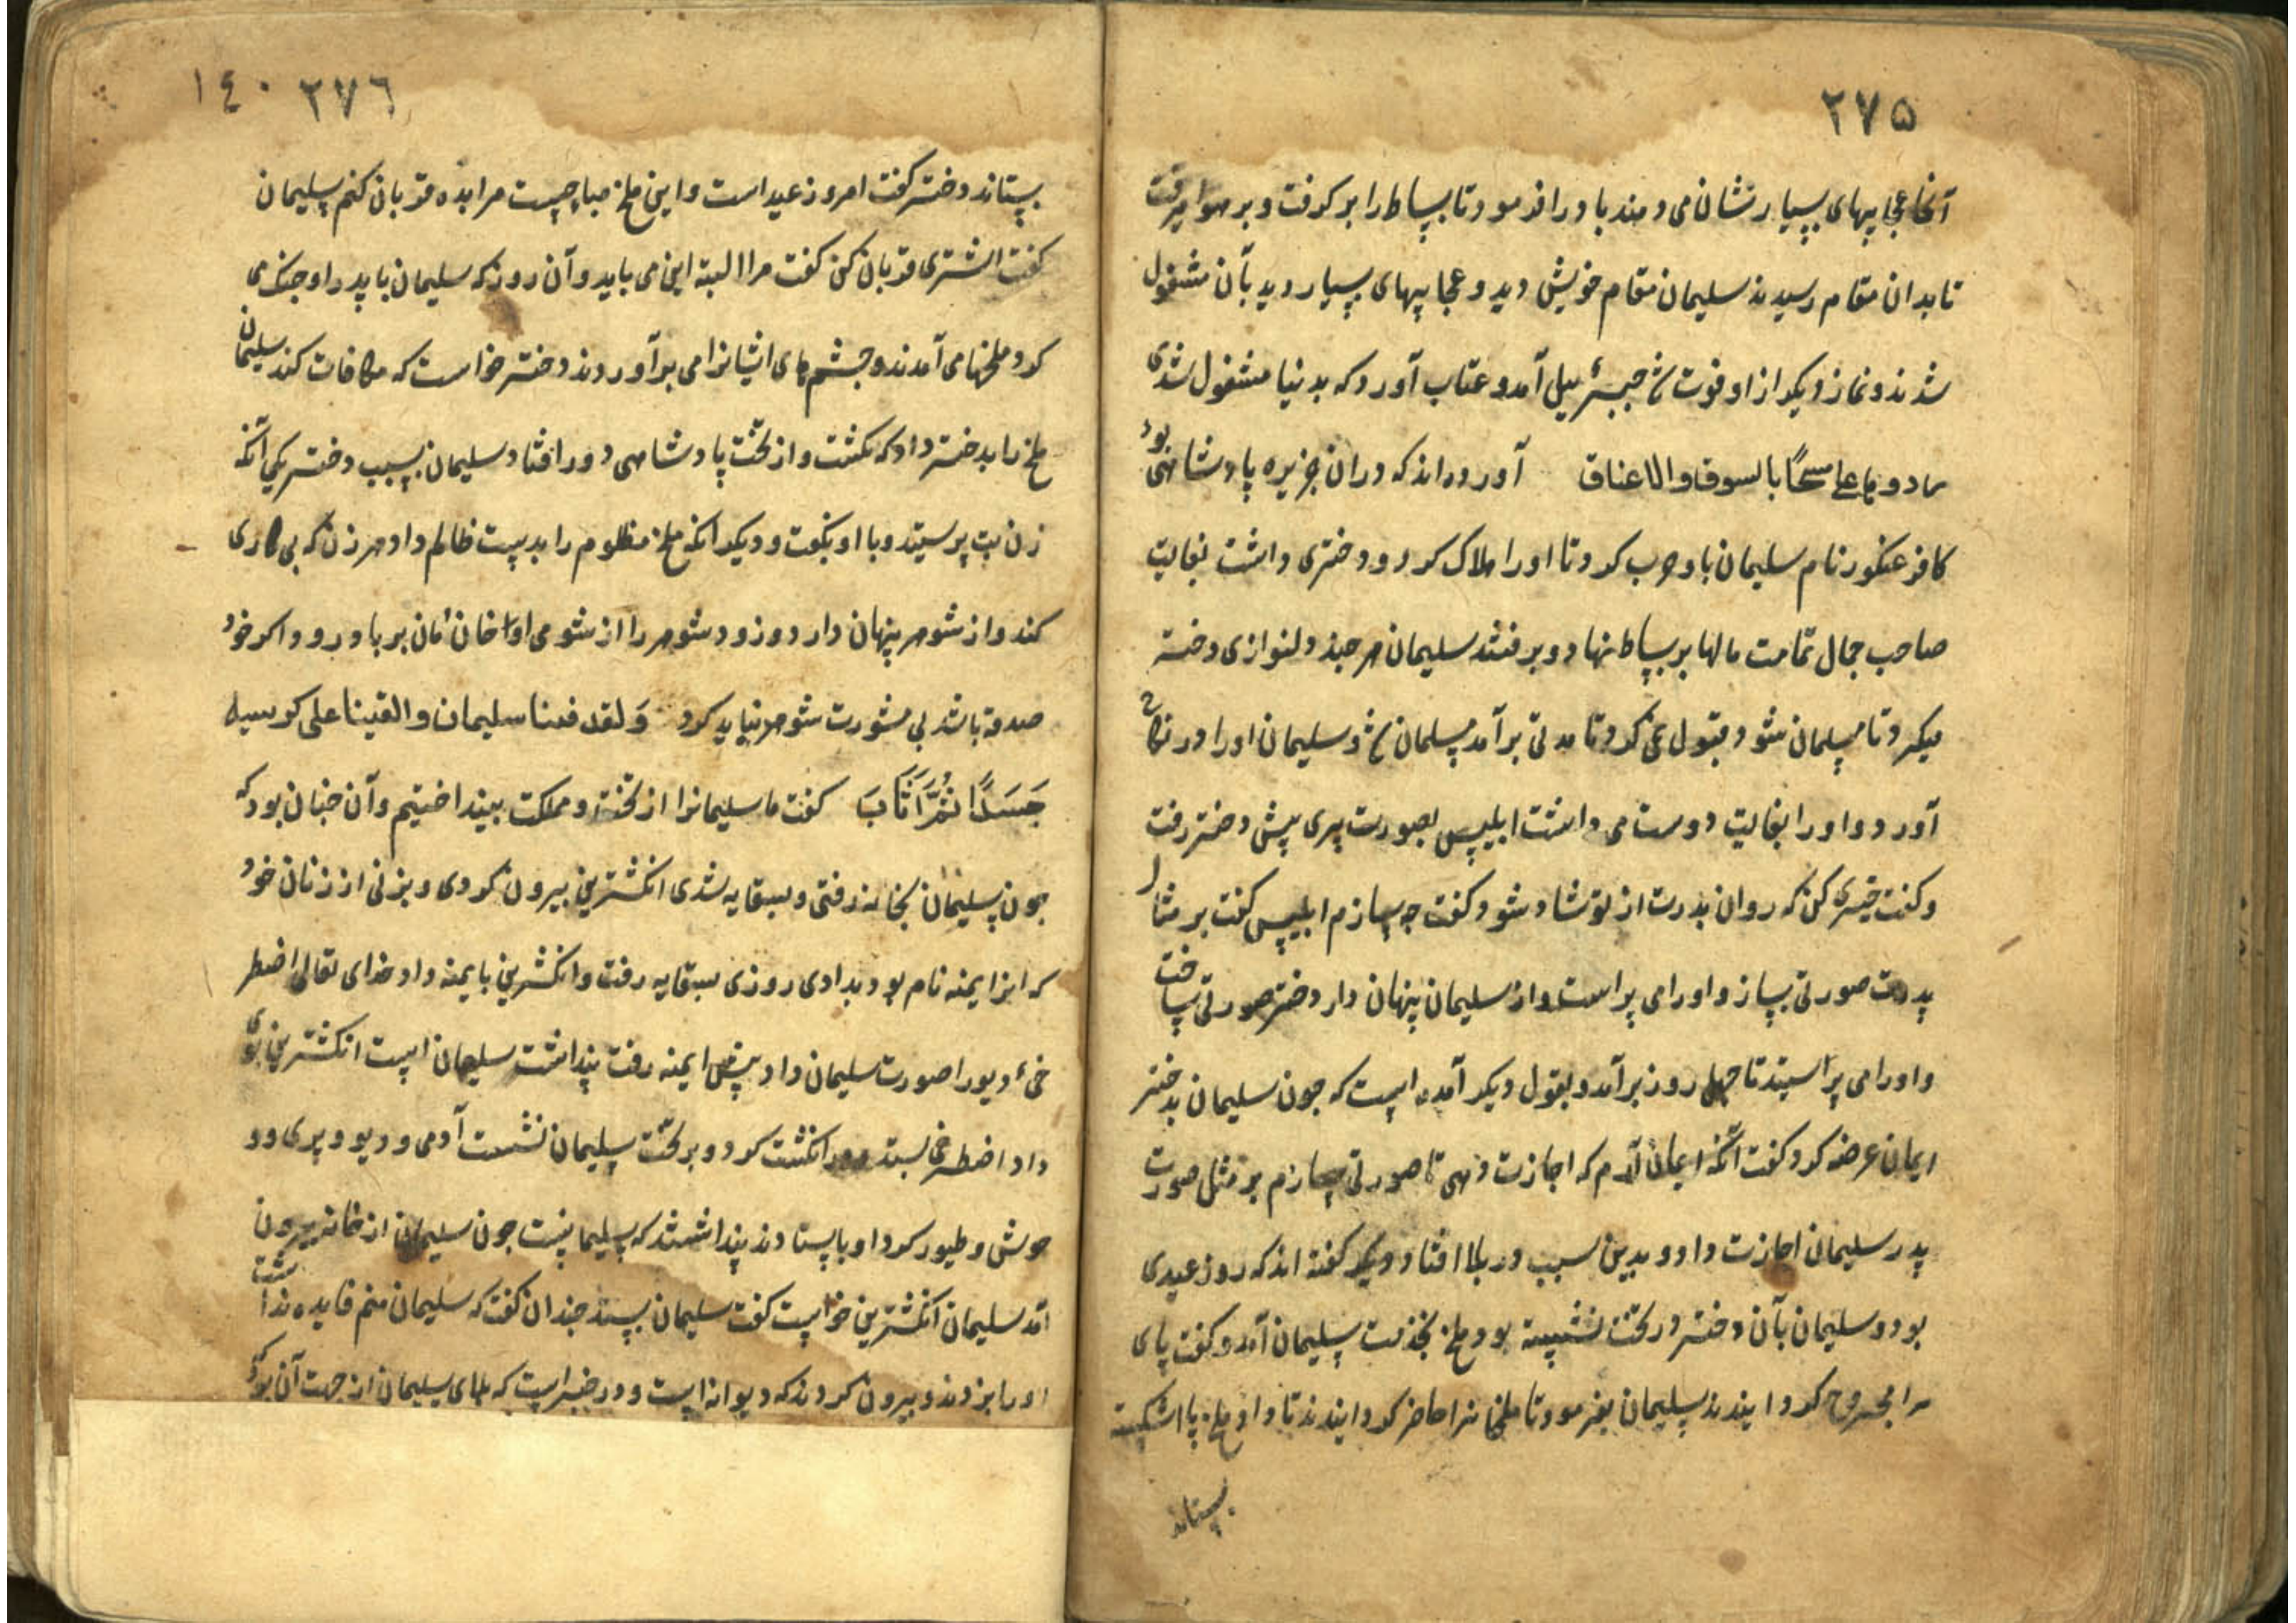 ٢٧٥
آنجا عجایبهای بسیار نشان می دهند باد را فرمود تا بساط را بر گرفت و بر هوا میرفت
تا بدان مقام رسیدند سلیمان مقام خویش دید و عجایبهای بسیار دید بآن مشغول
شدند و نماز دیکر از او فوت شد جبرئیل آمد و عتاب آورد که بدنیا مشغول شدی
مسحًا بالسوق والاعناق آورده اند که در ان جزیره پادشاهی بود
کافر عنکور نام سلیمان باو حرب کرد تا اورا هلاک کرد و دختری داشت بغایت
صاحب جمال تمامت مالها بر بساط نهاد و برفتند سلیمان هر چند دلنوازی دختر
میکرد تا مسلمان شود قبول نمی کرد تا مدتی بر آمد مسلمان شد و سلیمان اورا در نکاح
آورد و اورا بغایت دوست می داشت ابلیس بصورت پیری پیش دختر رفت
و کفت خیری کن که روان پدرت از تو شاد شود کفت چه سازم ابلیس کفت بر مثال
پدرت صورتی بساز و اورا می پرست و از سلیمان پنهان دار دختر صورتی ساخت
و اورا می پرستید تا چهل روز بر آمد و بقول دیکر آمده است که جون سلیمان بدختر
ایمان عرضه کرد کفت آنکه ایمان آرم که اجازت دهی تا صورتی سازم بر مثل صورت
پدر سلیمان اجازت داد و بدین سبب در بلا افتاد و دیکر کفته اند که روز عیدی
بود و سلیمان بآن دختر در تخت نشسته بود ملخ بخدمت سلیمان آمد و کفت پای
مرا مجروح کردانیدند سلیمان بفرمود تا ملخانرا حاضر کردانیدند تا داد ملخ پا شکسته
بستاند
٢٧٦ ١٤٠
بستاند دختر کفت امروز عید است و این ملخ مباحست مرا بده قربان کنم سلیمان
کفت اشتری قربان کن کفت مرا البته این می باید و آن روز که سلیمان با پدر او جنک می
کرد ملخها می آمدند و چشم های ایشانرا می بر آوردند دختر خواست که مکافات کند سلیمان
ملخ را بدختر داد که بکشت و از تخت پادشاهی دور افتاد سلیمان بسبب دختر یکی آنکه
زن بت پرستید و با او نکفت و دیکر آنکه ملخ مظلوم را بدست ظالم داد هر زن که بی کاری
کند و از شوهر پنهان دارد و زود شوهر را از شومی او خان مان بر باد رود و اکر خود
صدقه باشد بی مشورت شوهر نباید کرد وَلقد فتنا سلیمان و القینا علی کرسیه
جَسَدًا ثُمَّ اَنَابَ کفت ما سلیمانرا از تخت و مملکت بینداختیم و آن چنان بود که
جون سلیمان بخانه رفتی و بسقایه شدی انکشترین بیرون کردی و بزنی از زنان خود
که ایمنه نام بود بدادی روزی بسقایه رفت و انکشترین بایمنه داد خدای تعالی اضطر
خئ دیو را صورت سلیمان داد پیش ایمنه رفت پنداشت سلیمان است انکشترین بوی
داد اضطرخی بستد و در انکشت کرد و بر تخت سلیمان نشست آدمی و دیو و پری و و
حوش و طیور کرد او بایستادند پنداشتند که سلیمانست جون سلیمان از خانه بیرون
آمد سلیمان انکشترین خواست کفت سلیمان بستد چندان کفت که سلیمان منم فایده نداشت
اورا بزدند و بیرون کردند که دیوانه است و در خبر است که بلای سلیمان از جهت آن بود که